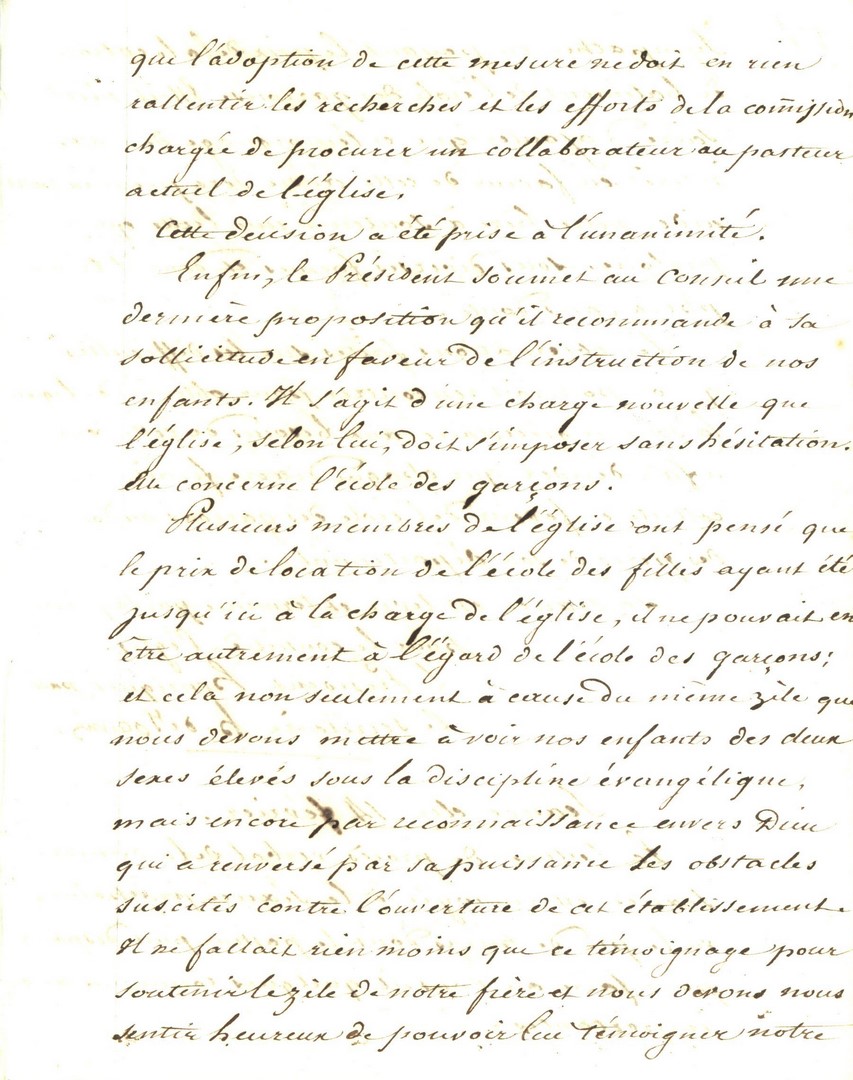 que l'adoption de cette mesure ne doit en rien
rallentir les recherches et les efforts de la com̃ission
chargée de procurer un collaborateur au pasteur
actuel de l'église.
Cette décision a été prise à l'unanimité.
Enfin, le Président soumet au Conseil une
dernière proposition qu'il recommande à sa
sollicitude en faveur de l'instruction de nos
enfants. Il s'agit d'une charge nouvelle que
l'église, selon lui, doit s'imposer sans hésitation.
Elle concerne l'école des garçons.
Plusieurs membres de l'église ont pensé que
le prix de location de l'école des filles ayant été
jusqu'ici à la charge de l'église, il ne pouvait en
être autrement à l'égard de l'école des garçons;
et cela non seulement à cause du même zèle que
nous devons mettre à voir nos enfants des deux
sexes élevés sous la discipline évangélique,
mais encore par reconnaissance envers Dieu
qui a renversé par sa puissance les obstacles
suscités contre l'ouverture de cet établissement.
Il ne fallait rien moins que ce témoignage pour
soutenir le zèle de notre frère et nous devons nous
sentir heureux de pouvoir lui témoigner notre